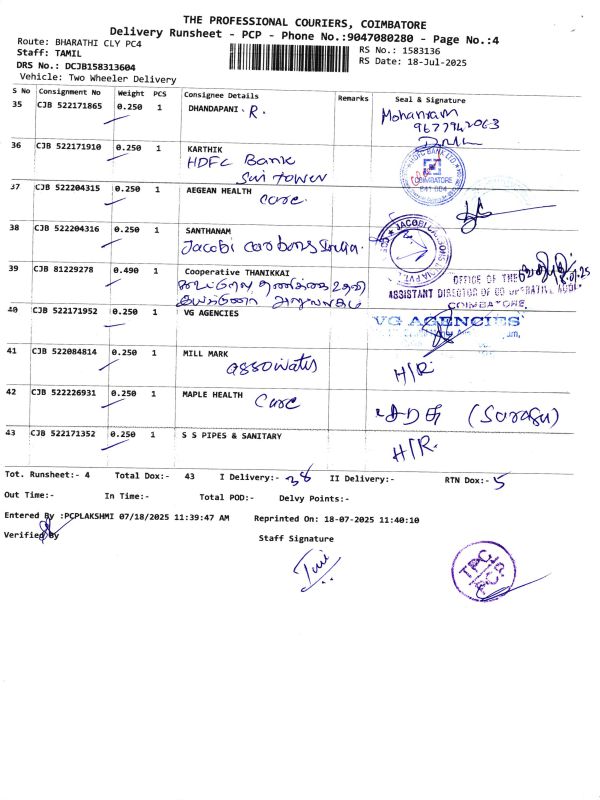 THE PROFESSIONAL COURIERS, COIMBATORE
Delivery Runsheet - PCP - Phone No.:9047080280 - Page No.:4
Route: BHARATHI CLY PC4
RS No.: 1583136
Staff: TAMIL
RS Date: 18-Jul-2025
DRS No.: DCJB158313604
Vehicle: Two Wheeler Delivery
S No Consignment No Weight PCS Consignee Details Remarks Seal & Signature
35 CJB 522171865 0.250 1 DHANDAPANI. R. Mohanram
9677942063
36 CJB 522171910 0.250 1 KARTHIK
HDFC Bank
Sri tower
HDFC BANK LTD
COIMBATORE
641 004
37 CJB 522204315 0.250 1 AEGEAN HEALTH
care.
38 CJB 522204316 0.250 1 SANTHANAM
Jacobi carbons India.
39 CJB 81229278 0.490 1 Cooperative THANIKKAI
OFFICE OF THE
ASSISTANT DIRECTOR OF CO OPERATIVE AUDI
COIMBATORE.
40 CJB 522171952 0.250 1 VG AGENCIES VG AGENCIES
41 CJB 522084814 0.250 1 MILL MARK
associates H/R.
42 CJB 522226931 0.250 1 MAPLE HEALTH
Care (Sarasu)
43 CJB 522171352 0.250 1 S S PIPES & SANITARY H/R.
Tot. Runsheet:- 4 Total Dox:- 43 I Delivery:- 38 II Delivery:- RTN Dox:- 5
Out Time:- In Time:- Total POD:- Delvy Points:-
Entered By :PCPLAKSHMI 07/18/2025 11:39:47 AM Reprinted On: 18-07-2025 11:40:10
Verified By Staff Signature